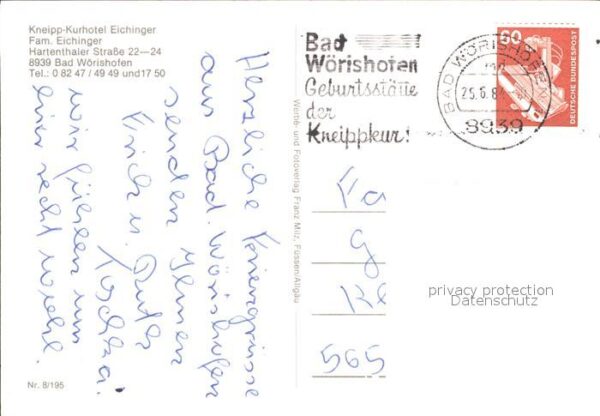 Kneipp-Kurhotel Eichinger
Fam. Eichinger
Hartenthaler Straße 22—24
8939 Bad Wörishofen
Tel.: 0 82 47 / 49 49 und 17 50
Herzliche Feriengrüsse
aus Bad. Wörishofen
senden Ihnen
Erich u. Ruth
wir fühlen uns
hier recht wohl.
Nr. 8/195
Werbe- und Fotoverlag Franz Milz, Füssen/Allgäu
Bad
Wörishofen
Geburtsstätte
der
Kneippkur!
BAD WÖRISHOFEN
25.6.84
8939
60
DEUTSCHE BUNDESPOST
Fa
G
Kl
565
privacy protection
Datenschutz